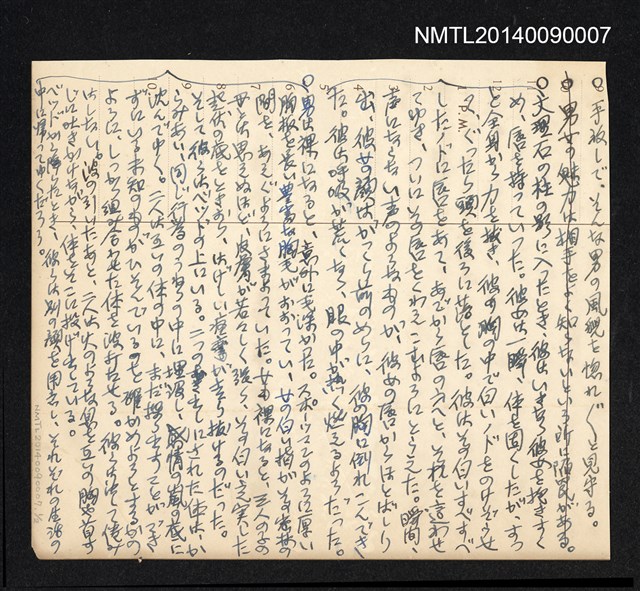 NMTL20140090007
○手放しで、そんな男の風貌を惚れ〴〵と見守る。
○男女の魅力は相手をよく知らないという所に陥罠がある。
○大理石の柱の影に入ったとき、彼はいきなり彼女を抱きすく
め、唇を持っていった。彼女は一瞬、体を固くしたが、すっ
と全身から力を抜き、彼の胸の中で白いノドをのけぞらせ
てぐったり頭を後ろに落とした。彼はその白いすべすべ
したノドに唇をあて、あごから唇の方へと、それを這わせ
てゆき、ついにその唇をくわえこむようにとらえた。瞬間、
声にならない声のようなものが、彼女の唇からほとばしり
出、彼女の頭はがっくり前のめりに、彼の胸に倒れこんでき
た。彼は呼吸が荒くなり、眼の中が熱く燃えるようだった。
○男は裸になると、意外に毛深かった。スポーツマンのように厚い
胸板を長い豊富な胸毛がおおってい、女の白い指がその密林の
間を、あえぐようにさまよっていた。女も裸になると、三人の子の
母とは思えぬほど、皮膚が若々しく張り、その白い充実した
起伏の底をときおり、はげしい痙攣が走り抜けるのだった。
そして彼らはベッドの上にいる。二つの
らみあい、同じ行為のうねりの中に埋没し、感情の嵐の底に
沈んでゆく。二人は互いの体の中に、まだ探り出すことができ
ずにいる未知のものがひそんでいるのを確かめようとするかの
ように、しっかり組み合わせた体を波打たせる。彼らは決して倦み
はしない。波の引いたあと、二人は火のような息を互いの胸や首す
じに吐きかけながら、体をそこに投げ出している。
ベッドから降りたとき、彼らは別の顔を用意し、それぞれの生活の
中に帰ってゆくだろう。
NMTL20140090007-1/2